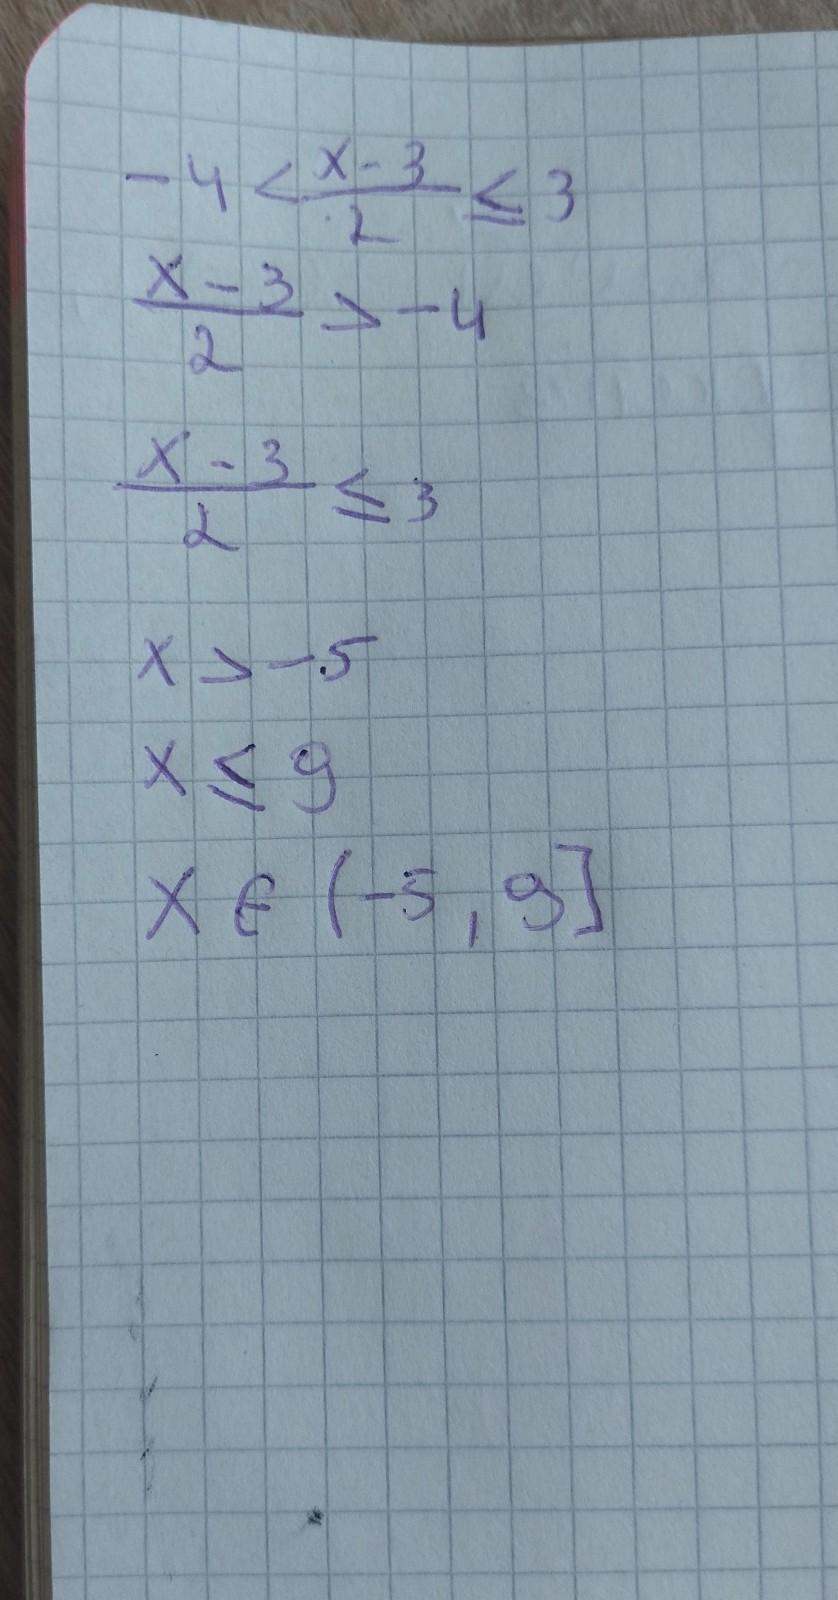 -4 < (x-3)/2 ≤ 3
(x-3)/2 > -4
(x-3)/2 ≤ 3
x > -5
x ≤ 9
x ∈ (-5, 9]